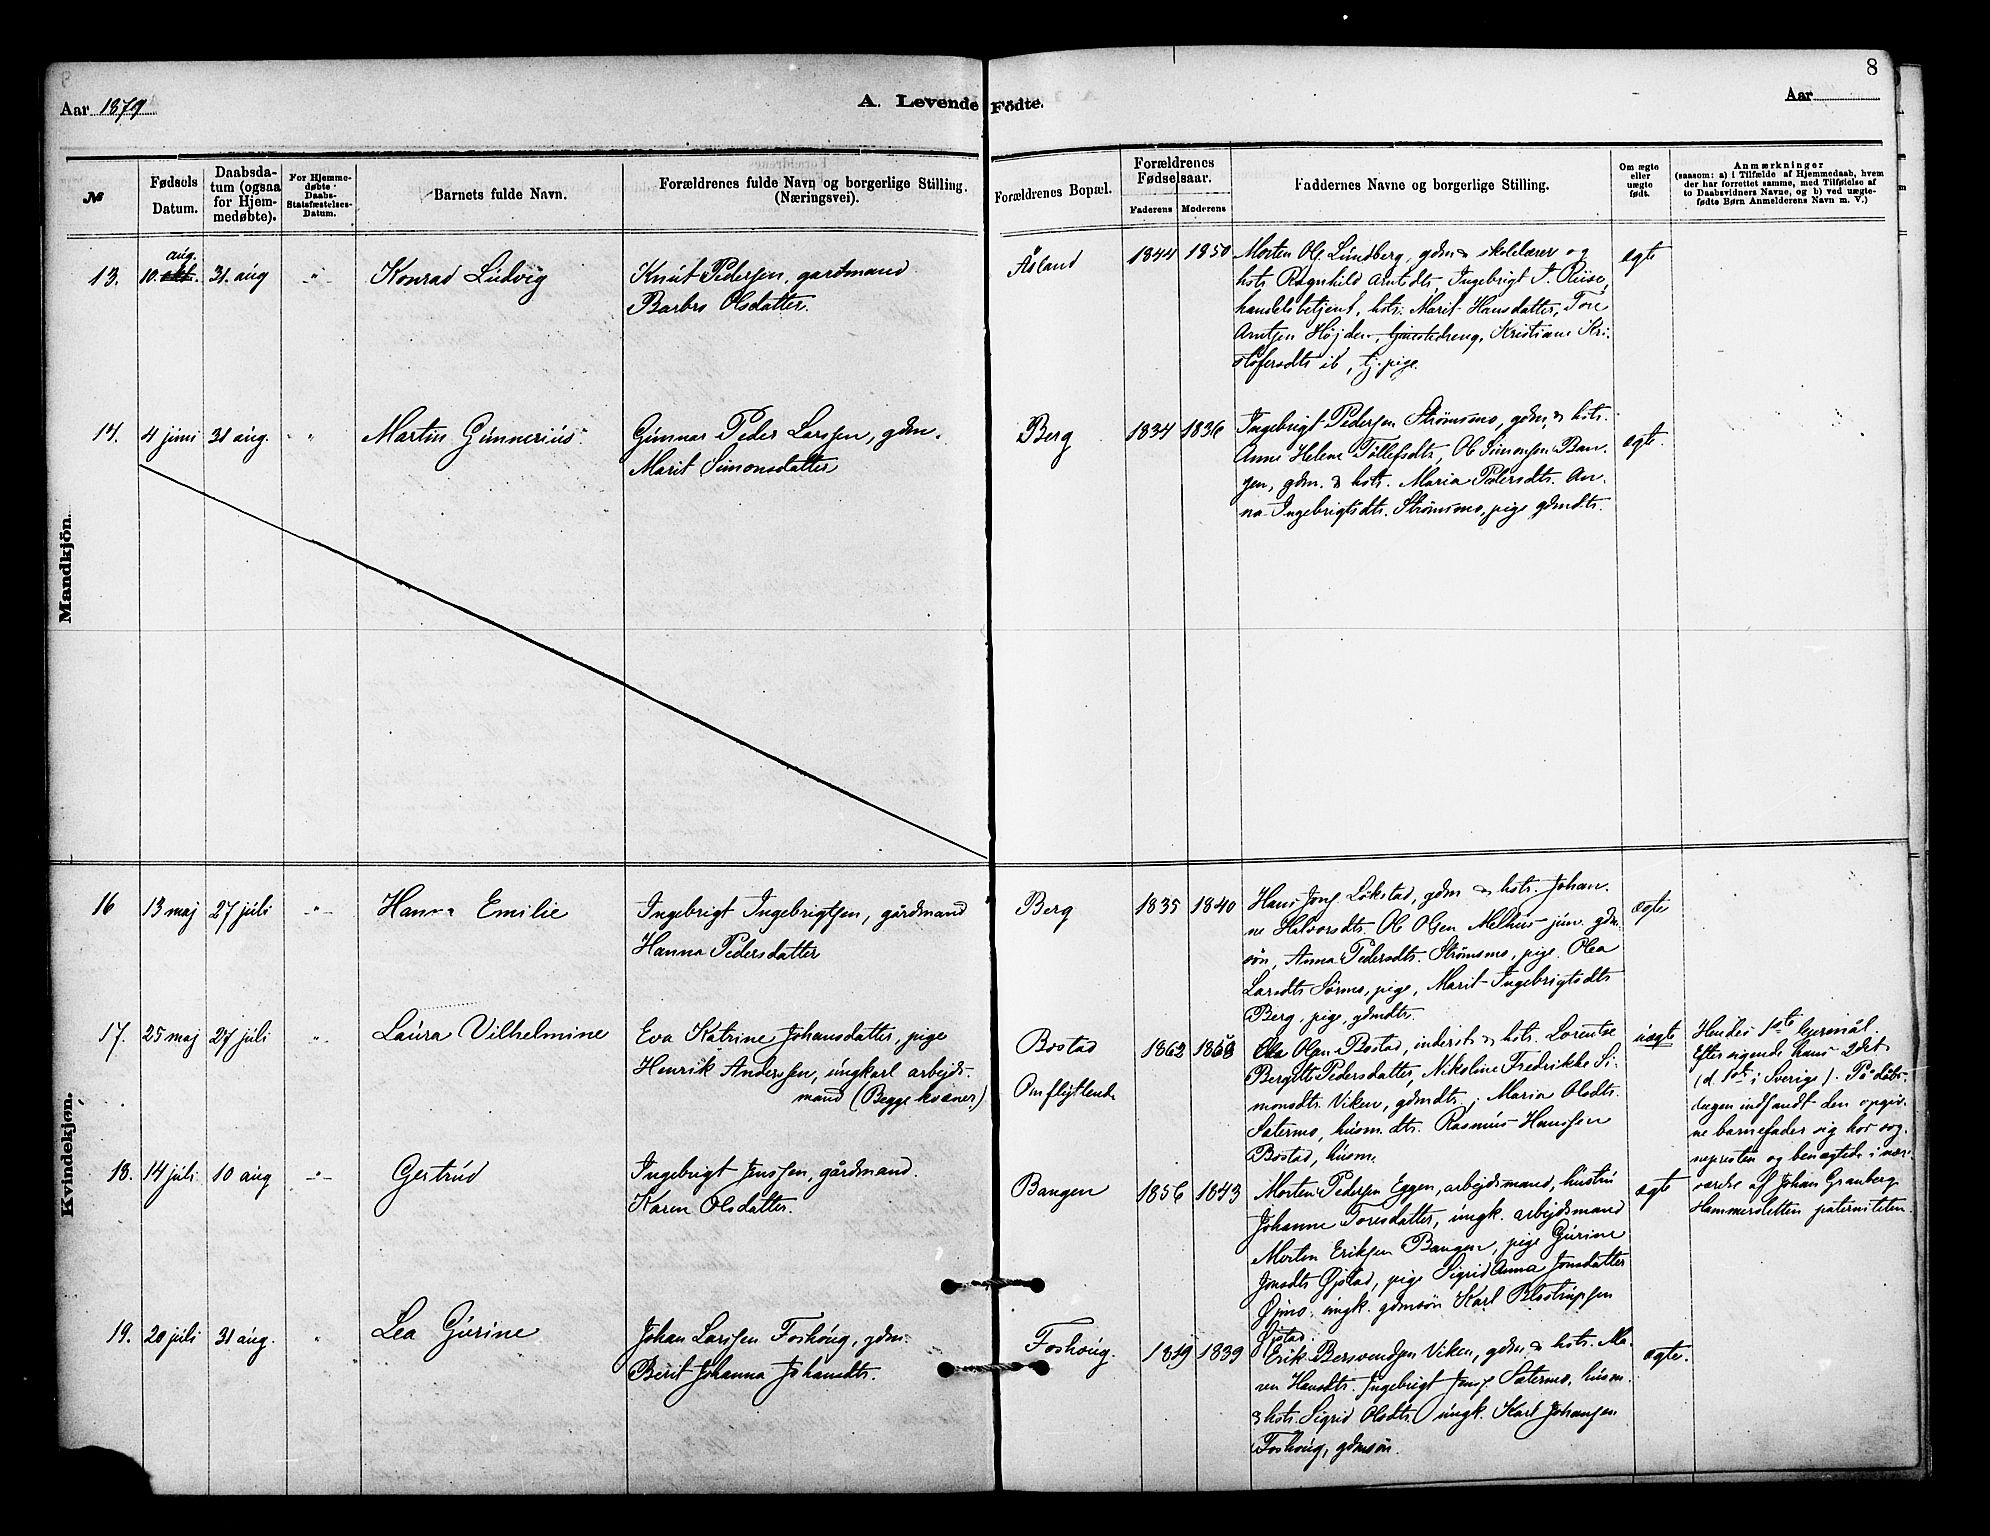 8
Aar 1879
A. Levende Födte.
Aar
№
Fødsels Datum.
Daabsdatum (ogsaa for Hjemmedøbte).
For Hjemmedøbte Daabs-Stadfæstelses-Datum.
Barnets fulde Navn.
Forældrenes fulde Navn og borgerlige Stilling. (Næringsvei).
Forældrenes Bopæl.
Forældrenes Fødselsaar.
Faderens
Moderens
Faddernes Navne og borgerlige Stilling.
Om ægte eller uægte født.
Anmærkninger
(saasom: a) i Tilfælde af Hjemmedaab, hvem
der har forrettet samme, med Tilføielse af
to Daabsvidners Navne, og b) ved uægte-
fødte Børn Anmelderens Navn m. V.)
Mandkjön.
13.
aug.
10. okt.
31. aug
Konrad Ludvig
Knut Pedersen, gardmand
Barbro Olsdatter.
Åsland
1844
1850
Morten Ols. Lundberg, gdm & skolelærer og
hstr Ragnhild Arntdtr, Ingebrigt I. Riise,
handelsbetjent, hstr. Marit Hansdatter, Tore
Arntsen Højden, tjenestedreng, Kristiane Kri-
stofersdtr ib, tj. pige.
egte
14.
4 juni
31 aug.
Martin Gunnerius
Gunnar Peder Larssen, gdm.
Marit Simonsdatter
Berg
1834
1836
Ingebrigt Pedersen Strømsmo, gdm, & hstr.
Anne Helene Tollefsdtr, Ol Simonsen Ban-
gen, gdm. & hstr. Maria Pedersdtr. An-
na Ingebrigtsdtr. Strømsmo, pige gdmdtr.
egte.
Kvindekjøn.
16
13 maj
27 juli
Hanna Emilie
Ingebrigt Ingebrigtsen, gårdmand
Hanna Pedersdatter
Berg
1835
1840
Hans Jons. Løkstad, gdm & hstr. Johan-
ne Halvorsdtr. Ol Olsen Melhus jun. gdm-
søn, Anna Pedersdtr. Strømsmo, pige. Olea
Larsdtr Sørmo, pige, Marit Ingebrigtsdtr
Berg, pige, gdmdtr.
ægte
17.
25 maj
27 juli
Laura Vilhelmine
Eva Katrine Johansdatter, pige
Henrik Anderssen, ungkarl arbejds-
mand (Begge kvæner)
Bostad
Omflyttende
1862
Ola Olsen Bostad, inderst & hstr. Lorentse
Bergitte Pedersdatter, Nikoline Fredrikke Si-
monsdtr. Viken, gdmdtr.; Maria Olsdtr.
Satermo, husm.dtr. Rasmus Hanssen
Bostad, husm.
uægte
Hendes 1ste lejermål.
Efter sigende hans 2det
(d. 1ste i Sverige). På dåbs-
dagen indfandt den opgiv-
ne barnefader sig hos sog-
nepresten og benægtede i nær-
værelse af Johan Granberg
Hammersletten paterniteten.
18.
14 juli
10 aug
Gertrud
Ingebrigt Jenssen, gårdmand.
Karen Olsdatter.
Bangen
1856
1843
Morten Pedersen Eggen, arbejdsmand, hustru
Johanne Toresdatter, ungk. arbejdsmand
Morten Eriksen Bangen, pige Gurine
Jonsdtr Øjstad, pige Sigrid Anna Jonsdatter
Øjmo, ungk. gdmsøn Karl Blostrupsen
Øjstad.
ægte
19.
20 juli
31 aug.
Lea Gurine
Johan Larssen Foshoug, gdm.
Berit Johanna Johansdtr.
Foshoug.
1819
1839
Erik Bersvendsen Viken, gdm. & hstr. Ma-
ren Hansdtr. Ingebrigt Jens. Satermo, husm.
& hstr. Sigrid Olsdtr. ungk. Karl Johansen
Foshoug, gdmsøn.
ægte.